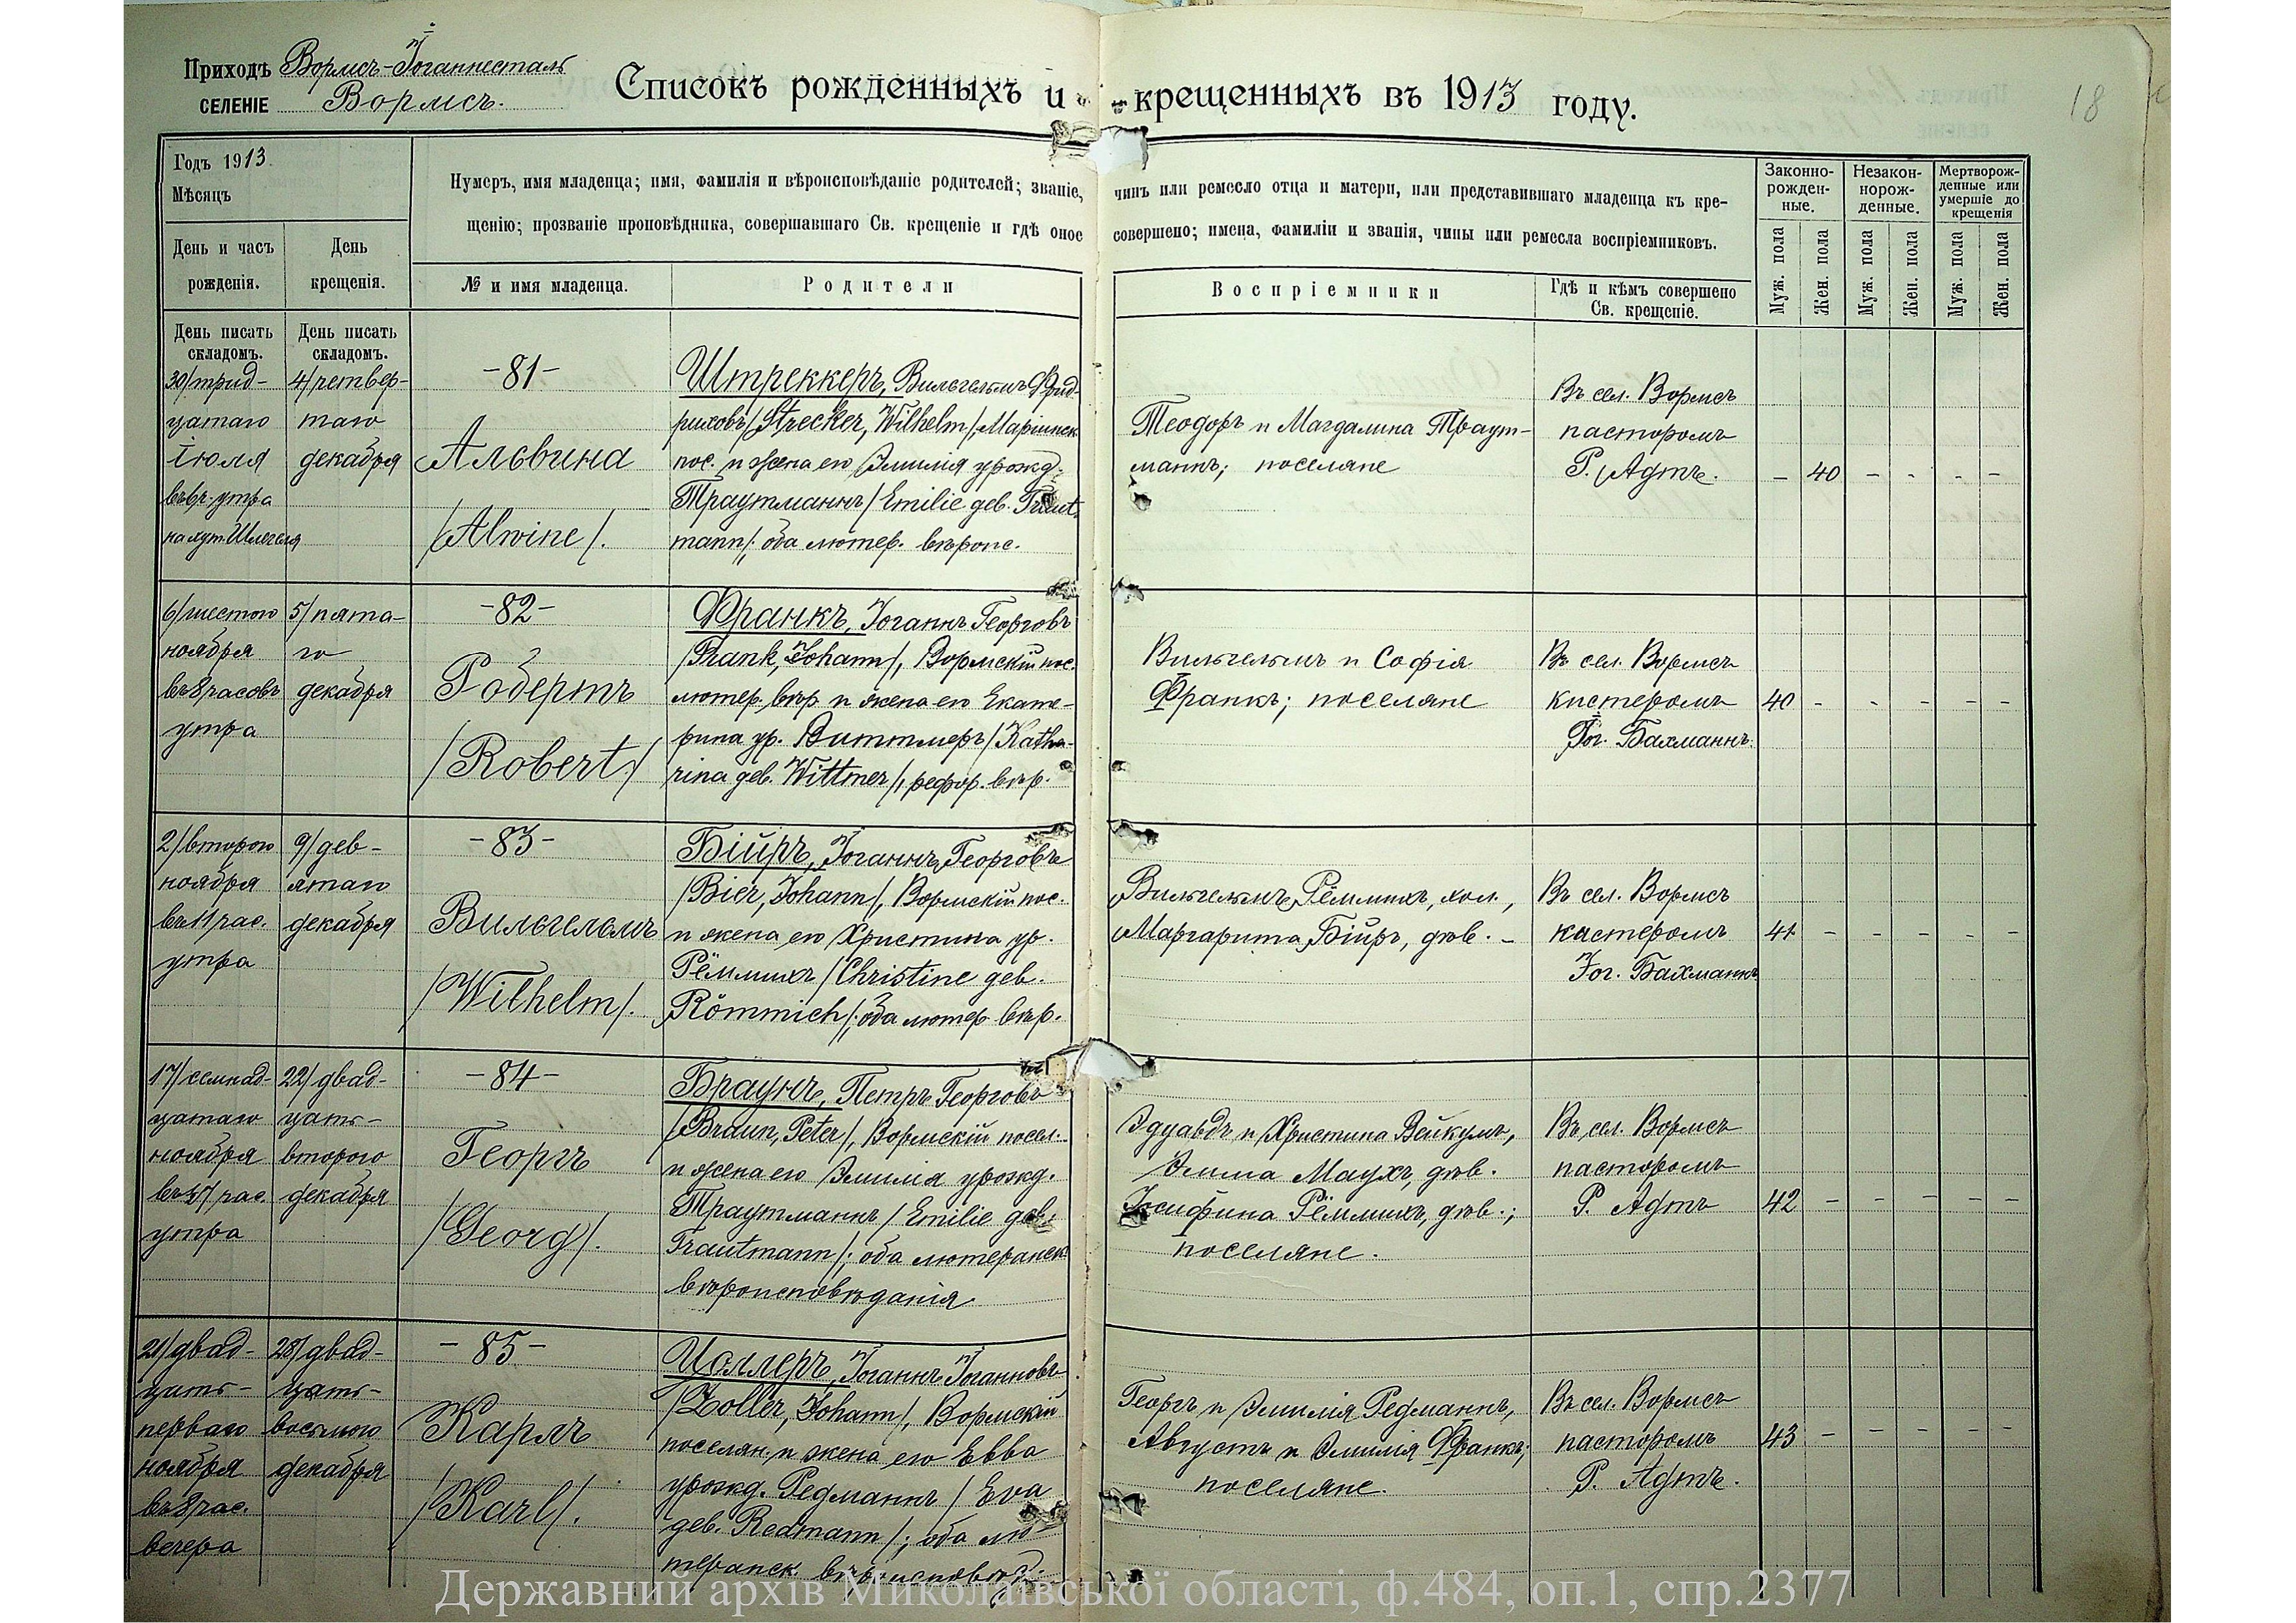 Приходъ Вормсъ-Іоганнесталь
СЕЛЕНІЕ Вормсъ.
Списокъ рожденныхъ и крещенныхъ въ 1913 году.
18
Годъ 1913.
Мѣсяцъ
День и часъ рожденія.
День крещенія.
Нумеръ, имя младенца; имя, фамилія и вѣроисповѣданіе родителей; званіе, чинъ или ремесло отца и матери, или представившаго младенца къ кре-
щенію; прозваніе проповѣдника, совершавшаго Св. крещеніе и гдѣ оное совершено; имена, фамиліи и званія, чины или ремесла воспріемниковъ.
№ и имя младенца.
Родители
Воспріемники
Гдѣ и кѣмъ совершено
Св. крещеніе.
Законно-
рожден-
ные.
Незакон-
норож-
денные.
Мертворож-
денные или
умершіе до
крещенія
Муж. пола
Жен. пола
Муж. пола
Жен. пола
Муж. пола
Жен. пола
День писать
складомъ.
День писать
складомъ.
30/трид-
цатаго
Іюля
въ 6 ч. утра
на хут. Шлегеля
4/четвер-
таго
декабря
-81-
Альвина
/Alwine/.
Штреккеръ, Вильгельмъ Фрид-
риховъ /Strecker, Wilhelm/, Маріинск.
пос. и жена его Эмилія урожд.
Траутманнъ /Emilie geb. Traut-
mann/; оба лютер. вѣроис.
Теодоръ и Магдалина Траут-
маннъ; поселяне
Въ сел. Вормсъ
пасторомъ
Р. Адтъ.
- 40 - - - -
6/шестого
ноября
въ 8 часовъ
утра
5/пята-
го
декабря
-82-
Робертъ
/Robert/
Франкъ, Іоганнъ Георговъ
/Frank, Johann/, Вормскій пос.
лютер. вѣр. и жена его Екате-
рина ур. Виттмеръ /Katha-
rina geb. Wittmer/, рефор. вѣр.
Вильгельмъ и Софія
Франкъ; поселяне
Въ сел. Вормсъ
кистеромъ
Іог. Бахманнъ.
40 - - - - -
2/второго
ноября
въ 11 час.
утра
9/дев-
ятаго
декабря
-83-
Вильгельмъ
/Wilhelm/.
Бійръ, Іоганнъ Георговъ
/Bier, Johann/, Вормскій пос.
и жена его Христина ур.
Рёммихъ /Christine geb.
Römmich/; оба лютер. вѣр.
Вильгельмъ Рёммихъ, хол.,
Маргарита Бійръ, дѣв. -
Въ сел. Вормсъ
кистеромъ
Іог. Бахманнъ
41 - - - - -
17/семнад-
цатаго
ноября
въ 7 час.
утра
22/двад-
цать-
второго
декабря
-84-
Георгъ
/Georg/.
Браунъ, Петръ Георговъ
/Braun, Peter/, Вормскій посел.
и жена его Эмилія урожд.
Траутманнъ /Emilie geb.
Trautmann/; оба лютеранск.
вѣроисповѣданія
Эдуардъ и Христина Вейкумъ,
Эмма Маухъ, дѣв.
Іосифина Рёммихъ, дѣв.;
поселяне.
Въ сел. Вормсъ
пасторомъ
Р. Адтъ
42 - - - - -
21/двад-
цать-
перваго
ноября
въ 8 час.
вечера
28/двад-
цать-
восьмого
декабря
-85-
Карлъ
/Karl/.
Цоллеръ, Іоганнъ Іоганновъ
/Zoller, Johann/, Вормскій
поселян. и жена его Евва
урожд. Редманнъ /Eva
geb. Redmann/; оба лю-
теранск. вѣроисповѣд.
Георгъ и Эмилія Редманнъ,
Августъ и Эмилія Франкъ;
поселяне.
Въ сел. Вормсъ
пасторомъ
Р. Адтъ.
43 - - - - -
Державний архів Миколаївської області, ф.484, оп.1, спр.2377